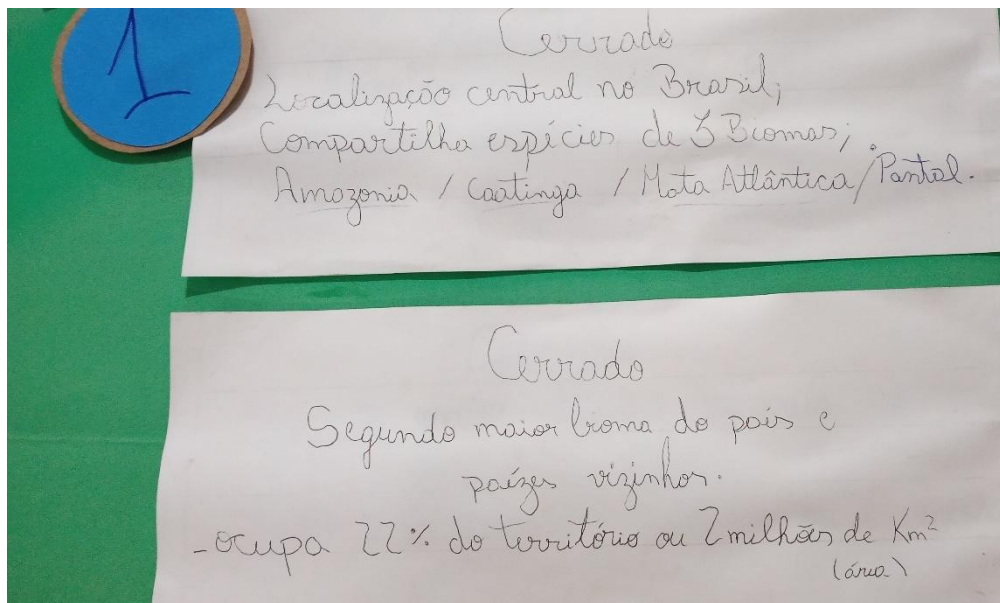 1
Cerrado
Localização central no Brasil;
Compartilha espícies de 3 Biomas;
Amazonia / Caatinga / Mata Atlântica / Pantal.
Cerrado
Segundo maior bioma do país e
paízes vizinhos.
- ocupa 22% do território ou 2 milhões de Km²
(área)